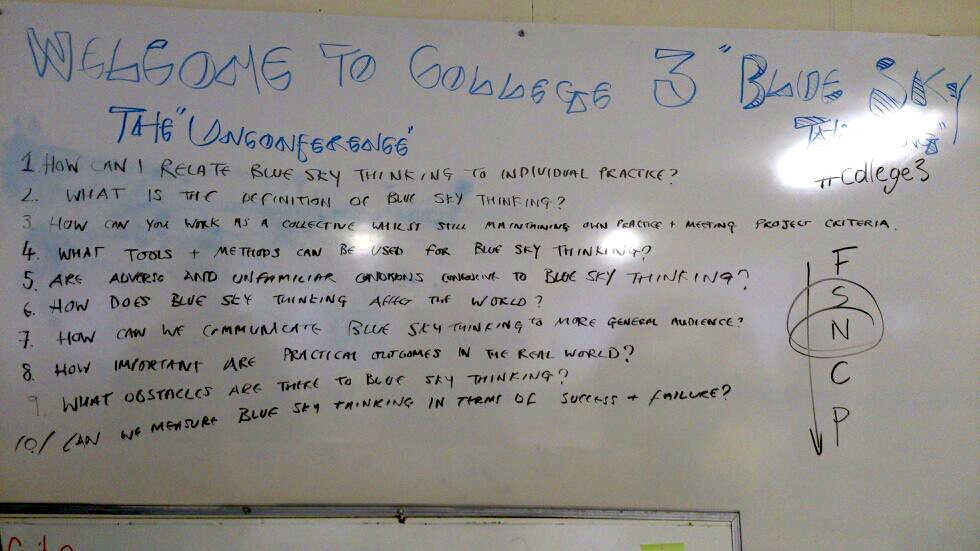 WELCOME TO COLLEGE 3 "BLUE SKY
THE "UNCONFERENCE"
#college3
1. HOW CAN I RELATE BLUE SKY THINKING TO INDIVIDUAL PRACTICE?
2. WHAT IS THE DEFINITION OF BLUE SKY THINKING?
3 HOW CAN YOU WORK AS A COLLECTIVE WHILST STILL MAINTAINING OWN PRACTICE + MEETING PROJECT CRITERIA.
4. WHAT TOOLS + METHODS CAN BE USED FOR BLUE SKY THINKING?
5. ARE ADVERSE AND UNFAMILIAR CONDITIONS CONDUCIVE TO BLUE SKY THINKING?
6. HOW DOES BLUE SKY THINKING AFFECT THE WORLD?
7. HOW CAN WE COMMUNICATE BLUE SKY THINKING TO MORE GENERAL AUDIENCE?
8. HOW IMPORTANT ARE PRACTICAL OUTCOMES IN THE REAL WORLD?
9. WHAT OBSTACLES ARE THERE TO BLUE SKY THINKING?
10/ CAN WE MEASURE BLUE SKY THINKING IN TERMS OF SUCCESS + FAILURE?
F
S
N
C
P